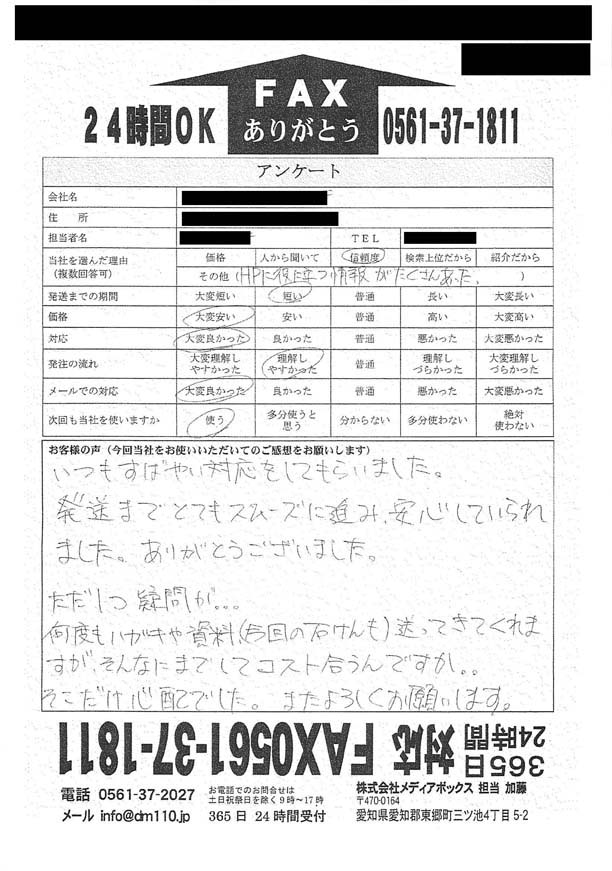 FAX
ありがとう
24時間OK
0561-37-1811
アンケート
会社名
住 所
担当者名 TEL
当社を選んだ理由
(複数回答可)
価格 人から聞いて 信頼度 検索上位だから 紹介だから
その他(HPに役に立つ情報がたくさんあった。)
発送までの期間 大変短い 短い 普通 長い 大変長い
価格 大変安い 安い 普通 高い 大変高い
対応 大変良かった 良かった 普通 悪かった 大変悪かった
発注の流れ 大変理解しやすかった 理解しやすかった 普通 理解しづらかった 大変理解しづらかった
メールでの対応 大変良かった 良かった 普通 悪かった 大変悪かった
次回も当社を使いますか 使う 多分使うと思う 分からない 多分使わない 絶対使わない
お客様の声(今回当社をお使いいただいてのご感想をお願いします)
いつもすばやい対応をしてもらいました。
発送までとてもスムーズに進み、安心していられ
ました。ありがとうございました。
ただ1つ疑問が...
何度もハガキや資料(今回の石けんも)送ってきてくれま
すが、そんなにまでしてコスト合うんですか。。
そこだけ心配でした。またよろしくお願いします。
365日
24時間
対応
FAX0561-37-1811
電話 0561-37-2027
メール info@dm110.jp
お電話でのお問合せは
土日祝祭日を除く9時~17時
365日 24時間受付
株式会社メディアボックス 担当 加藤
〒470-0164
愛知県愛知郡東郷町三ツ池4丁目5-2